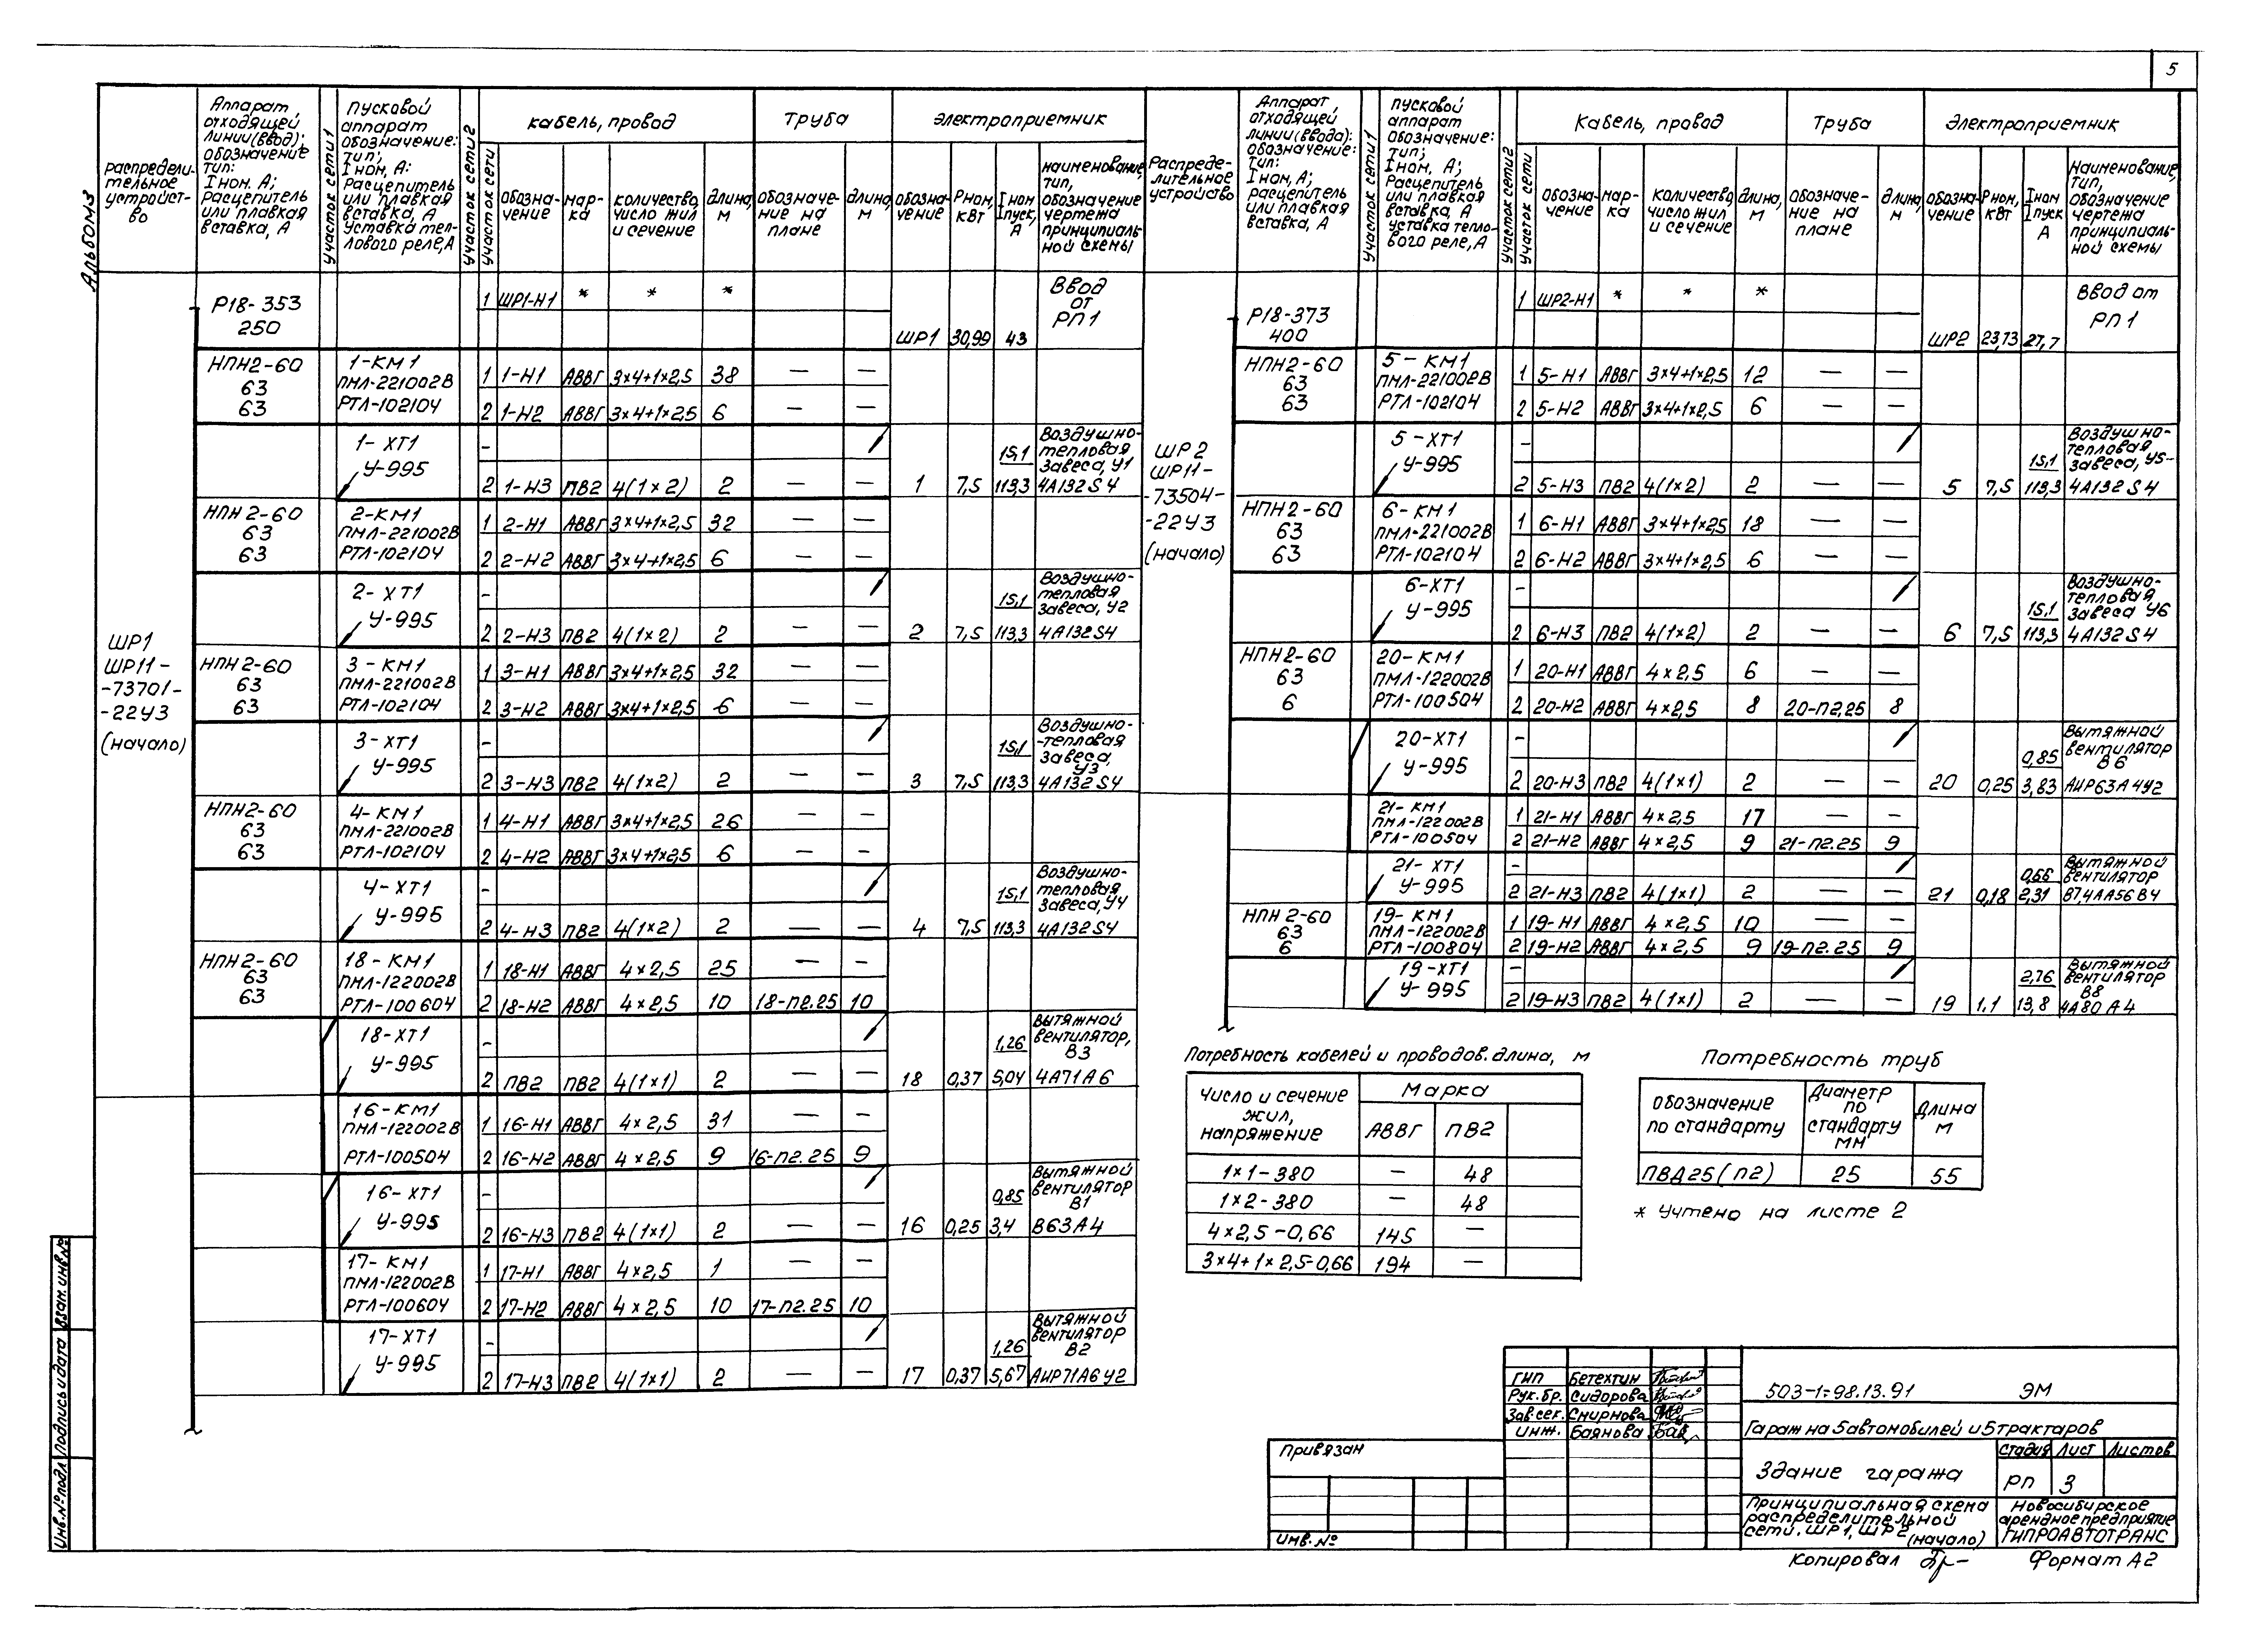 5
Альбом 3
Распределительное устройство
Аппарат отходящей линии (ввод); обозначение тип: Iном. А; Расцепитель или плавкая вставка, А
Участок сети 1
Пусковой аппарат обозначение: тип; Iном, А: Расцепитель или плавкая вставка, А Уставка теплового реле, А
Участок сети 2
Участок сети
Кабель, провод
Обозначение
Марка
Количество, число жил и сечение
Длина, м
Труба
Обозначение на плане
Длина, м
Электроприемник
Обозначение
Рном, кВт
Iном Iпуск, А
Наименование, тип, обозначение чертежа принципиальной схемы
ШР1
ШР11-
-73701-
-22У3
(начало)
Р18-353
250
1 ШР1-Н1 * * *
ШР1 30,99 43
Ввод от РП1
НПН2-60
63
63
1-КМ1
ПМЛ-221002В
РТЛ-102104
1 1-Н1 АВВГ 3×4+1×2,5 38 — —
2 1-Н2 АВВГ 3×4+1×2,5 6 — —
1-ХТ1
У-995
-
2 1-Н3 ПВ2 4(1×2) 2 — —
1 7,5 15,1 113,3
Воздушно-тепловая завеса, У1
4А132S4
НПН2-60
63
63
2-КМ1
ПМЛ-221002В
РТЛ-102104
1 2-Н1 АВВГ 3×4+1×2,5 32 — —
2 2-Н2 АВВГ 3×4+1×2,5 6 — —
2-ХТ1
У-995
-
2 2-Н3 ПВ2 4(1×2) 2 — —
2 7,5 15,1 113,3
Воздушно-тепловая завеса, У2
4А132S4
НПН2-60
63
63
3-КМ1
ПМЛ-221002В
РТЛ-102104
1 3-Н1 АВВГ 3×4+1×2,5 32 — —
2 3-Н2 АВВГ 3×4+1×2,5 6 — —
3-ХТ1
У-995
-
2 3-Н3 ПВ2 4(1×2) 2 — —
3 7,5 15,1 113,3
Воздушно-тепловая завеса, У3
4А132S4
НПН2-60
63
63
4-КМ1
ПМЛ-221002В
РТЛ-102104
1 4-Н1 АВВГ 3×4+1×2,5 26 — —
2 4-Н2 АВВГ 3×4+1×2,5 6 — —
4-ХТ1
У-995
-
2 4-Н3 ПВ2 4(1×2) 2 — —
4 7,5 15,1 113,3
Воздушно-тепловая завеса, У4
4А132S4
НПН2-60
63
63
18-КМ1
ПМЛ-122002В
РТЛ-100604
1 18-Н1 АВВГ 4×2,5 25 — —
2 18-Н2 АВВГ 4×2,5 10 18-П2.25 10
18-ХТ1
У-995
-
2 ПВ2 ПВ2 4(1×1) 2 — —
18 0,37 1,26 5,04
Вытяжной вентилятор, В3
4А71А6
16-КМ1
ПМЛ-122002В
РТЛ-100504
1 16-Н1 АВВГ 4×2,5 31 — —
2 16-Н2 АВВГ 4×2,5 9 16-П2.25 9
16-ХТ1
У-995
-
2 16-Н3 ПВ2 4(1×1) 2 — —
16 0,25 0,85 3,4
Вытяжной вентилятор В1
В63А4
17-КМ1
ПМЛ-122002В
РТЛ-100604
1 17-Н1 АВВГ 4×2,5 1 — —
2 17-Н2 АВВГ 4×2,5 10 17-П2.25 10
17-ХТ1
У-995
-
2 17-Н3 ПВ2 4(1×1) 2 — —
17 0,37 1,26 5,67
Вытяжной вентилятор В2
АИР71А6У2
Распределительное устройство
Аппарат, отходящей линии (ввода): обозначение: тип: Iном, А; расцепитель или плавкая вставка, А
Участок сети 1
Пусковой аппарат обозначение: тип; Iном, А; Расцепитель или плавкая вставка, А Уставка теплового реле, А
Участок сети 2
Участок сети
Кабель, провод
Обозначение
Марка
Количество, число жил и сечение
Длина, м
Труба
Обозначение на плане
Длина, м
Электроприемник
Обозначение
Рном, кВт
Iном Iпуск А
Наименование, тип, обозначение чертежа принципиальной схемы
ШР2
ШР11-
-73504-
-22У3
(начало)
Р18-373
400
1 ШР2-Н1 * * *
ШР2 23,73 27,7
Ввод от РП1
НПН2-60
63
63
5-КМ1
ПМЛ-221002В
РТЛ-102104
1 5-Н1 АВВГ 3×4+1×2,5 12 — —
2 5-Н2 АВВГ 3×4+1×2,5 6 — —
5-ХТ1
У-995
-
2 5-Н3 ПВ2 4(1×2) 2 — —
5 7,5 15,1 113,3
Воздушно-тепловая завеса, У5
4А132S4
НПН2-60
63
63
6-КМ1
ПМЛ-221002В
РТЛ-102104
1 6-Н1 АВВГ 3×4+1×2,5 18 — —
2 6-Н2 АВВГ 3×4+1×2,5 6 — —
6-ХТ1
У-995
-
2 6-Н3 ПВ2 4(1×2) 2 — —
6 7,5 15,1 113,3
Воздушно-тепловая завеса У6
4А132S4
НПН2-60
63
6
20-КМ1
ПМЛ-122002В
РТЛ-100504
1 20-Н1 АВВГ 4×2,5 6 — —
2 20-Н2 АВВГ 4×2,5 8 20-П2,25 8
20-ХТ1
У-995
-
2 20-Н3 ПВ2 4(1×1) 2 — —
20 0,25 0,85 3,83
Вытяжной вентилятор В6
АИР63А4У2
21-КМ1
ПМЛ-122002В
РТЛ-100504
1 21-Н1 АВВГ 4×2,5 17 — —
2 21-Н2 АВВГ 4×2,5 9 21-П2.25 9
21-ХТ1
У-995
-
2 21-Н3 ПВ2 4(1×1) 2 — —
21 0,18 0,66 2,31
Вытяжной вентилятор
В7,4АА56В4
НПН2-60
63
6
19-КМ1
ПМЛ-122002В
РТЛ-100804
1 19-Н1 АВВГ 4×2,5 10 — —
2 19-Н2 АВВГ 4×2,5 9 19-П2.25 9
19-ХТ1
У-995
-
2 19-Н3 ПВ2 4(1×1) 2 — —
19 1.1 2,76 13,8
Вытяжной вентилятор В8
4А80А4
Потребность кабелей и проводов. длина, м
Число и сечение жил, напряжение
Марка
АВВГ ПВ2
1×1-380 — 48
1×2-380 — 48
4×2,5-0,66 145 —
3×4+1×2,5-0,66 194 —
Потребность труб
Обозначение по стандарту
Диаметр по стандарту мм
Длина м
ПВД25(П2) 25 55
* Учтено на листе 2
ГИП Бетехтин
Рук.бр. Сидорова
Зав.сек. Смирнова
Инж. Баянова
503-1-98.13.91 ЭМ
Гараж на 5 автомобилей и 5 тракторов
Здание гаража
Стадия Лист Листов
РП 3
Принципиальная схема распределительной сети. ШР1, ШР2 (начало)
Новосибирское арендное предприятие ГИПРОАВТОТРАНС
Привязан
Инв.№
Копировал
Формат А2
Инв.№ подл. Подпись и дата Взам. инв.№